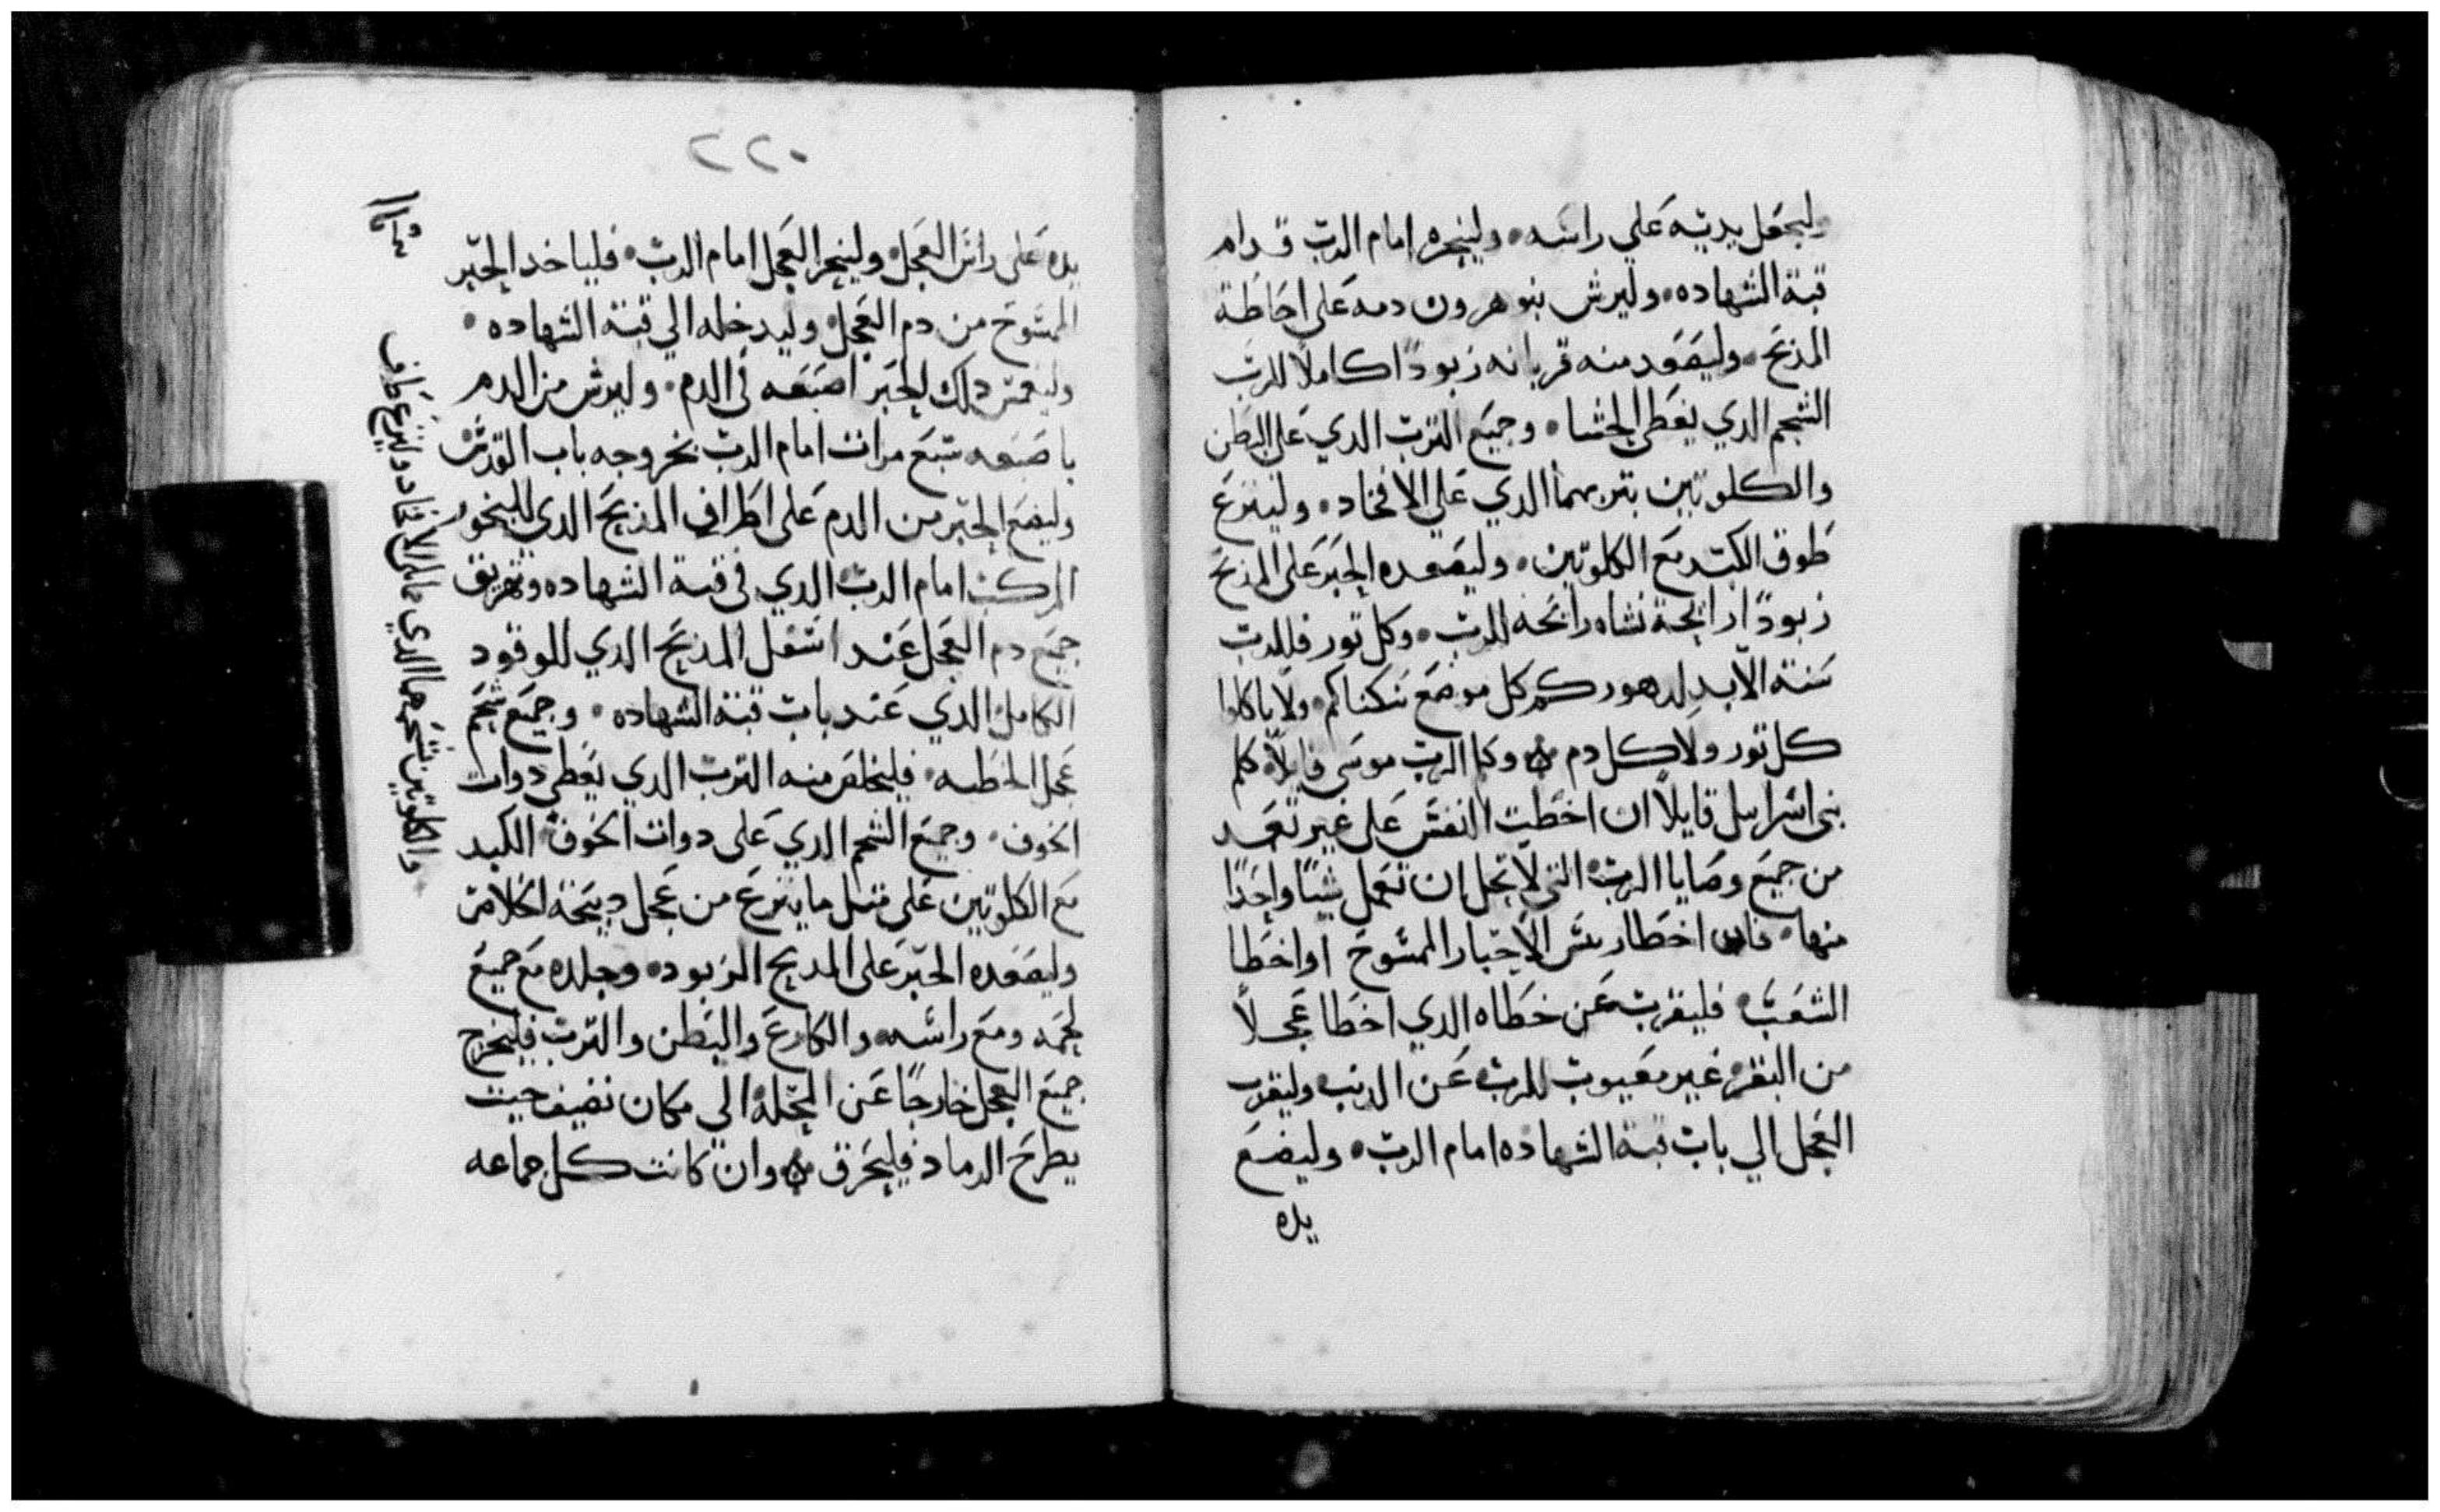 وليجعل يديه علي راسه • ولينحره امام الرب قدام
قبة الشهاده • وليرش بنو هرون دمه على احاطة
المذبح • وليصعد منه قربانه زبودًا كاملا للرب
الشحم الدي يغطي الحشا • وجميع الترب الدي على البطن
والكلوتين بتربهما الدي علي الافخاد • ولينزع
طوق الكبد مع الكلوتين • وليصعده الحبر على المذبح
زبودًا رايحة نشاه رايحه للرب • وكل تور فللرب
سنة الابد لدهوركم كل موضع سكناكم • ولا ياكلوا
كل تور ولا كل دم ⁘ وكلم الرب موسى قايلاً • كلم
بنى اسراييل قايلاً ان اخطت النفس على غير تعمد
من جميع وصايا الرب • التي لا يحل ان تعمل شيًا واحدًا
منها • فان اخطا ريس الاحبار الممسوح او اخطا
الشعب • فليقرب عن خطاه الدي اخطا عجلاً
من البقر • غير معيوب للرب عن الدنب • وليقرب
العجل الي باب قبة الشهاده امام الرب • وليضع
يده
٢٢٠
يده على راس العجل • ولينحر العجل امام الرب • فلياخد الحبر
الممسوح من دم العجل • وليدخله الي قبة الشهاده •
وليغمس دلك الحبر اصبعه في الدم • وليرش من الدم
باصبعه سبع مرات امام الرب بخروجه باب القدس
وليضع الحبر من الدم على اطراف المذبح الدي للبخور
المركب امام الرب الدي في قبة الشهاده وتهريق
جميع دم العجل عند اسفل المذبح الدي للوقود
الكامل الدي عند باب قبة الشهاده • وجميع شحم
عجل الخطيه • فليخلص منه الترب الدي يغطي دوات
الخوف • وجميع الشحم الدي على دوات الخوف الكبد
مع الكلوتين على متل ما ينزع من عجل دبيحة الخلاص
وليصعده الحبر على المدبح الزبود • وجلده مع جميع
لحمه ومع راسه • والكارع والبطن والترب فليخرج
جميع العجل خارجًا عن المحلة الي مكان نضيف حيت
يطرح الرماد فليحرق ⁘ وان كانت كل جماعه
والكلوتين شحمهما الدي على الافخاد ولينزع طرف